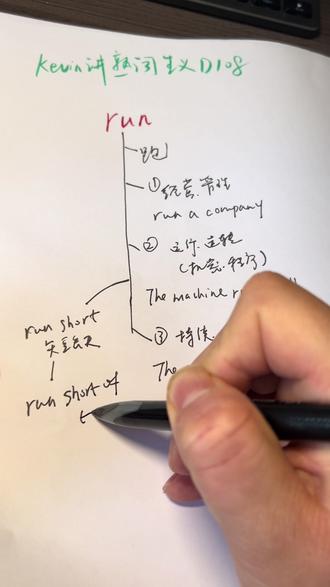 Kevin讲熟词生义D108
run
跑
① 经营.管理
run a company
② 运行.运转
(机器.程序)
The machine r
run short
③ 持续.
The
run short of